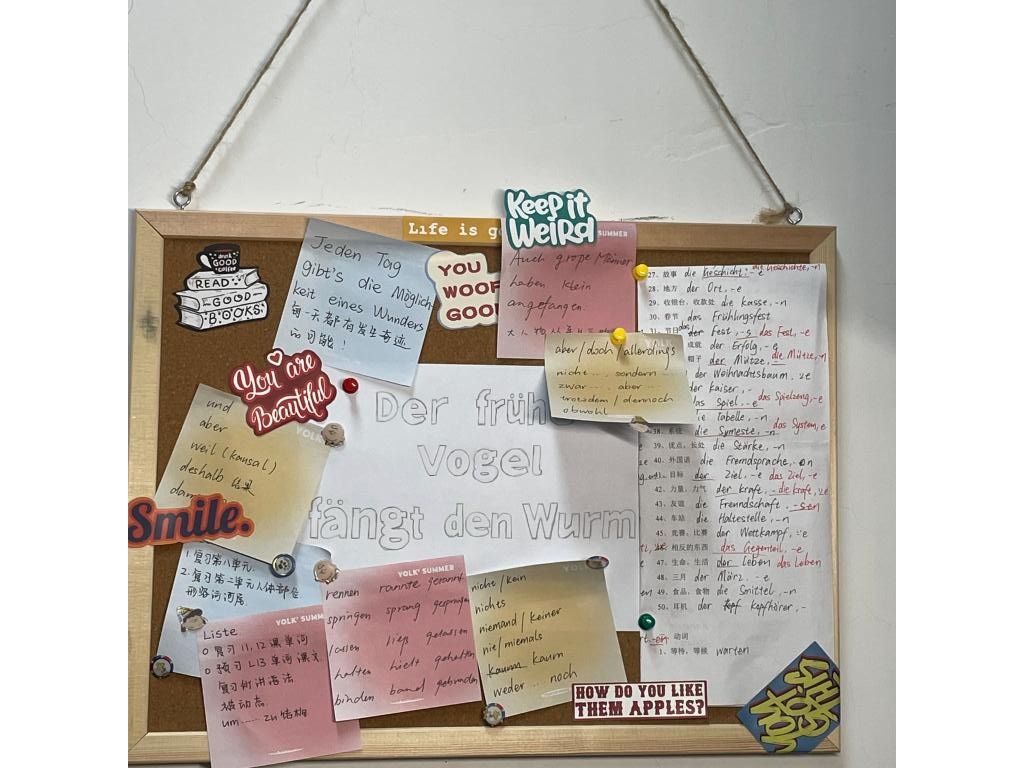 drink
GOOD
coffee
READ
GOOD
BOOKS
Jeden Tag
gibt's die Möglich
keit eines Wunders
每一天都有发生奇迹
的可能！
Life is go
YOU
WOOF
GOO
Keep it
Weird
SUMMER
Auch große Männer
haben klein
angefangen.
aber/doch/allerdings
nicht ... sondern
zwar ... aber ...
trotzdem/dennoch
obwohl
You are
Beautiful
und
aber
weil (kausal)
deshalb 结果
Der früh
Vogel
fängt den Wurm
Smile.
1. 复习第八单元.
2. 复习第二单元人体部位
形容词词尾.
YOLK' SUMM
Liste
o 复习11,12课单词
o 预习L13单词课文
复习听讲语法
被动态.
um ...... zu 结构
YOLK' SUMMER
rennen rannte gerannt
springen sprang gesprungen
lassen ließ gelassen
halten hielt gehalten
binden band gebunden
nicht/kein
nichts
niemand/keiner
nie/niemals
kaum kaum
weder ... noch
27. 故事 die Geschicht, -e die Geschichte, -n
28. 地方 der Ort, -e
29. 收银台，收款处 die Kasse, -n
30. 春节 das Frühlingsfest
31. 节日 das der Fest, -s das Fest, -e
成就 der Erfolg, -e
帽子 der Mütze, die Mütze, -n
der Weihnachtsbaum, ⸚e
der Kaiser, -
das Spiel, -e das Spielzeug, -e
die Tabelle, -n
38. 系统 die Symeste, -n das System, e
39. 优点，长处 die Stärke, -n
40. 外国语 die Fremdsprache, -n
41. 目标 der Ziel, -e das Ziel, -e
42. 力量，力气 der Kraft, - die Kraft, ⸚e
43. 友谊 die Freundschaft, -en
44. 车站 die Haltestelle, -n
45. 竞赛，比赛 der Wettkampf, ⸚e
46. 相反的东西 das Gegenteil, -e
47. 生命，生活 der Leben das Leben
48. 三月 der März, -e
49. 食品，食物 die Smittel, -n
50. 耳机 der Kopfhörer, -
动词
1. 等待，等候 warten
HOW DO YOU LIKE
THEM APPLES?